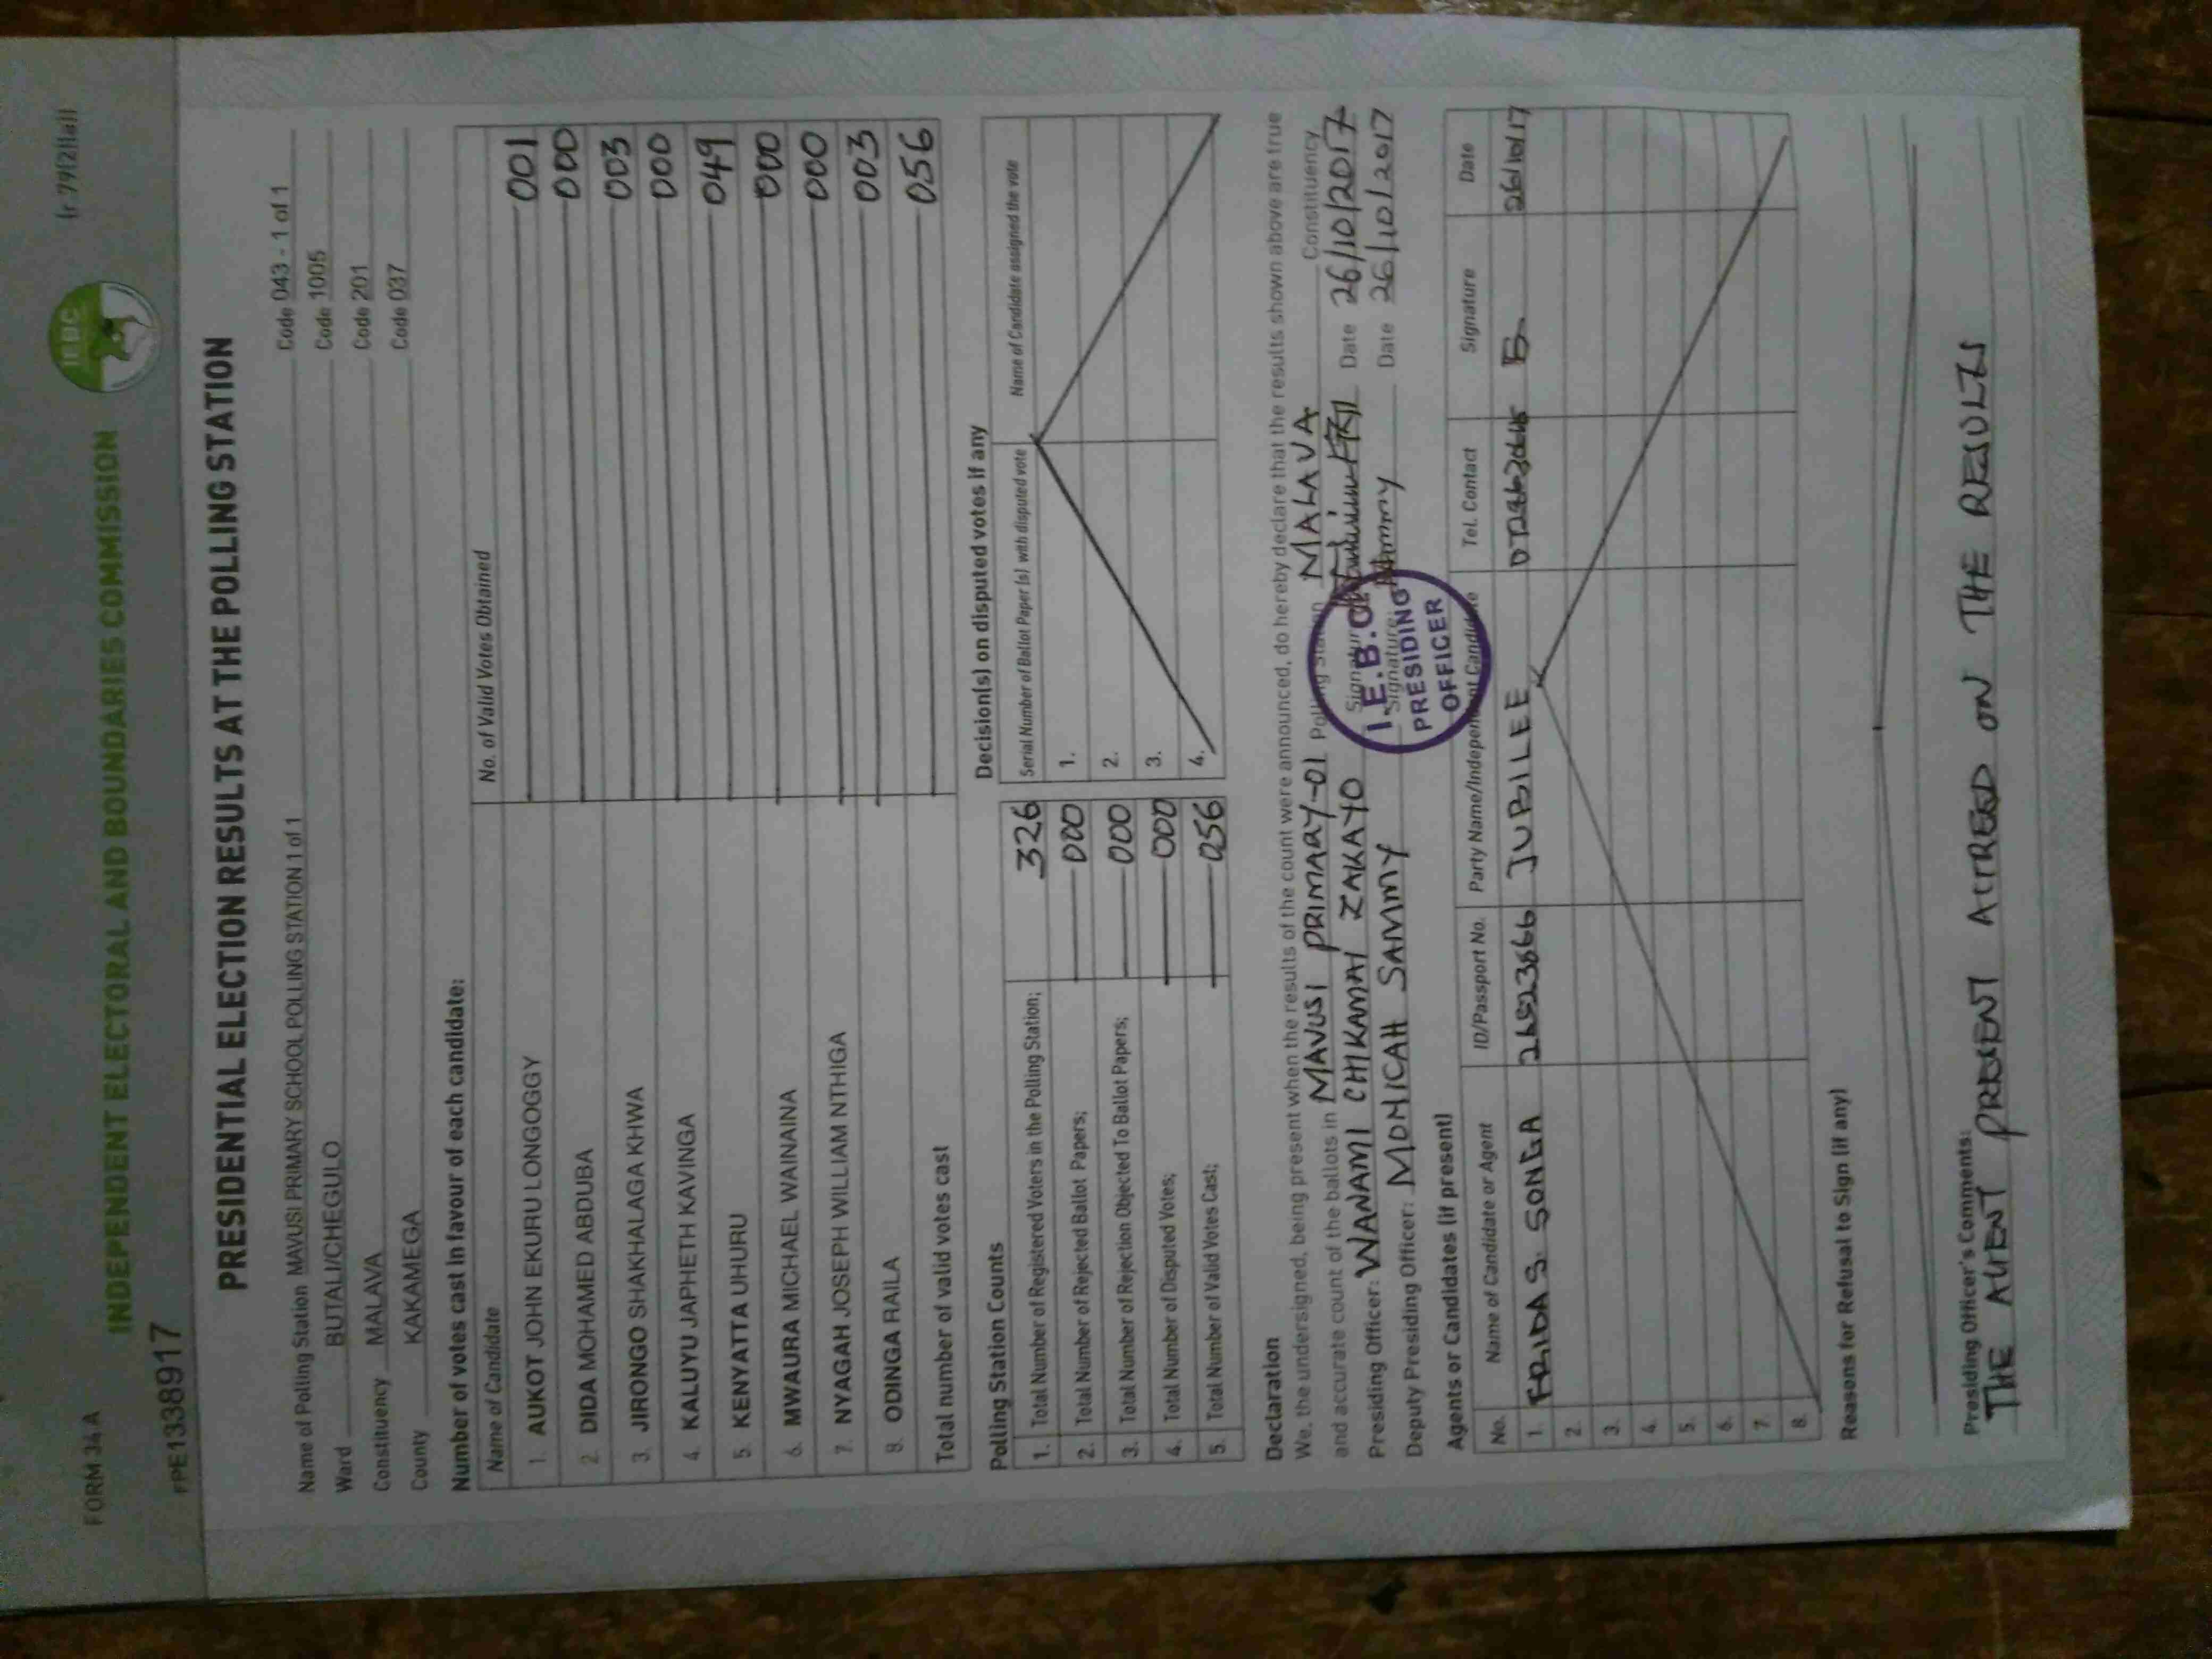 FORM 34A
INDEPENDENT ELECTORAL AND BOUNDARIES COMMISSION
IEBC
(r 79(2)(a))
FPE1338917
PRESIDENTIAL ELECTION RESULTS AT THE POLLING STATION
Name of Polling Station MAVUSI PRIMARY SCHOOL POLLING STATION 1 of 1 Code 043 - 1 of 1
Ward BUTALI/CHEGULO Code 1005
Constituency MALAVA Code 201
County KAKAMEGA Code 037
Number of votes cast in favour of each candidate:
Name of Candidate No. of Valid Votes Obtained
1. AUKOT JOHN EKURU LONGOGGY 001
2. DIDA MOHAMED ABDUBA 000
3. JIRONGO SHAKHALAGA KHWA 003
4. KALUYU JAPHETH KAVINGA 000
5. KENYATTA UHURU 049
6. MWAURA MICHAEL WAINAINA 000
7. NYAGAH JOSEPH WILLIAM NTHIGA 000
8. ODINGA RAILA 003
Total number of valid votes cast 056
Polling Station Counts
1. Total Number of Registered Voters in the Polling Station; 326
2. Total Number of Rejected Ballot Papers; 000
3. Total Number of Rejection Objected To Ballot Papers; 000
4. Total Number of Disputed Votes; 000
5. Total Number of Valid Votes Cast; 056
Decision(s) on disputed votes if any
Serial Number of Ballot Paper (s) with disputed vote Name of Candidate assigned the vote
1.
2.
3.
4.
Declaration
We, the undersigned, being present when the results of the count were announced, do hereby declare that the results shown above are true
and accurate count of the ballots in MAVUSI PRIMARY-01 Polling Station MALAVA Constituency
Presiding Officer: WANAMI CHIKAMAI ZAKAYO Signature Date 26/10/2017
Deputy Presiding Officer: MONICAH SAMMY Signature: Date 26/10/2017
I.E.B.C
PRESIDING
OFFICER
Agents or Candidates (if present)
No. Name of Candidate or Agent ID/Passport No. Party Name/Independent Candidate Tel. Contact Signature Date
1. FRIDA S. SONGA JUBILEE 26/10/17
2.
3.
4.
5.
6.
7.
8.
Reasons for Refusal to Sign (if any)
Presiding Officer's Comments:
THE AGENT PRESENT AGREED ON THE RESULTS